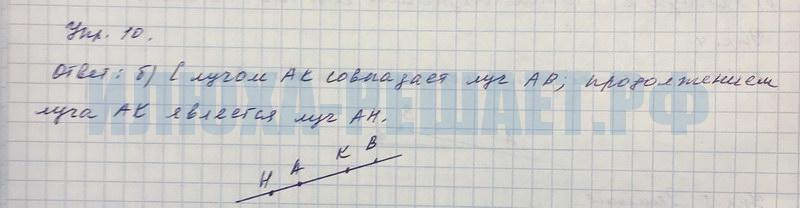 Упр. 10.
Ответ: б) С лучом АК совпадает луч АВ; продолжением
луча АК является луч АН.
ИЛЮХА-РЕШАЕТ.РФ
Н А К В